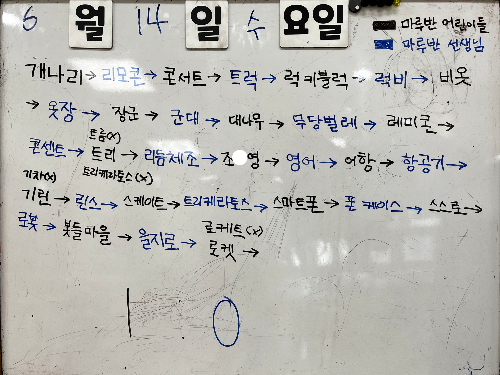 6 월 14 일 수 요일
마루반 어린이들
마루반 선생님
개나리→ 리모콘→ 콘서트→ 트럭→ 럭키블럭→ 럭비→ 비옷
→ 옷장→ 장군→ 군대→ 대나무→ 무당벌레→ 레미콘→
트름(x)
콘센트→ 트리→ 리듬체조→ 조영→ 영어→ 어항→ 항공기→
기차(x) 트리케라톱스(x)
기린→ 린스→ 스케이트→ 트리케라톱스→ 스마트폰→ 폰케이스→ 스스로→
로케트(x)
로봇→ 봇들마을→ 을지로→ 로켓→